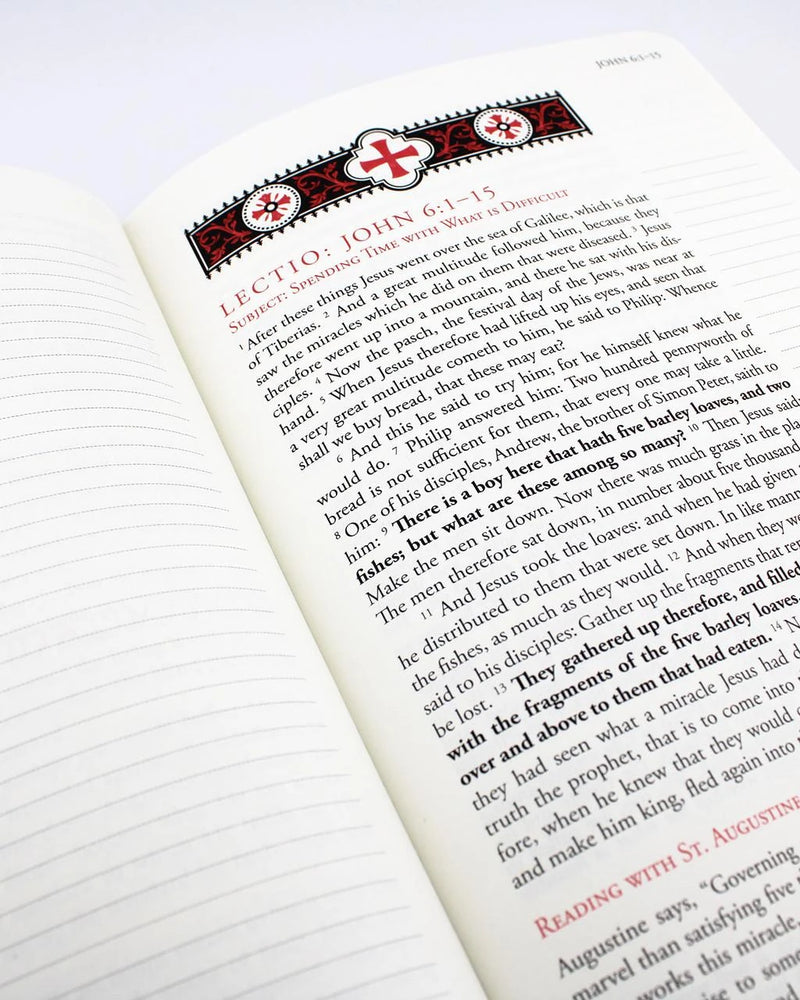 JOHN 6:1–15
LECTIO: JOHN 6:1–15
SUBJECT: SPENDING TIME WITH WHAT IS DIFFICULT
1 After these things Jesus went over the sea of Galilee, which is that
of Tiberias. 2 And a great multitude followed him, because they
saw the miracles which he did on them that were diseased. 3 Jesus
therefore went up into a mountain, and there he sat with his dis-
ciples. 4 Now the pasch, the festival day of the Jews, was near at
hand. 5 When Jesus therefore had lifted up his eyes, and seen that
a very great multitude cometh to him, he said to Philip: Whence
shall we buy bread, that these may eat?
6 And this he said to try him; for he himself knew what he
would do. 7 Philip answered him: Two hundred pennyworth of
bread is not sufficient for them, that every one may take a little.
8 One of his disciples, Andrew, the brother of Simon Peter, saith to
him: 9 There is a boy here that hath five barley loaves, and two
fishes; but what are these among so many? 10 Then Jesus said:
Make the men sit down. Now there was much grass in the
The men therefore sat down, in number about five thousand
11 And Jesus took the loaves: and when he had given
he distributed to them that were set down. In like
the fishes, as much as they would. 12 And when they
said to his disciples: Gather up the fragments that
be lost. 13 They gathered up therefore, and filled
with the fragments of the five barley loaves,
over and above to them that had eaten. 14
they had seen what a miracle Jesus had
truth the prophet, that is to come into
fore, when he knew that they would
and make him king, fled again into
READING WITH ST. AUGUSTINE
Augustine says, “Governing
marvel than satisfying five
works this miracle,
to some